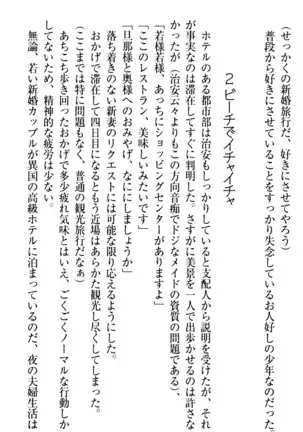 (せっかくの新婚旅行だ、好きにさせてあげないとな)
普段から好きにさせていることをすっかり失念しているお人好しの少年なのだった。
2 ビーチでイチャイチャ
ホテルのある都市部は治安もしっかりしていると支配人から説明を受けたが、それ
が事実なのは滞在してすぐに判明した。さすがに美景を一人で出歩かせるのは許さな
かったが(治安云々よりもこの方向音痴でドジなメイドの資質の問題である)、
「若様若様、あっちにショッピングセンターがありますよ」
「ここのレストラン、美味しいみたいです」
「旦那様と奥様へのおみやげ、なににしましょうか」
落ち着きのない新妻のリクエストには可能な限り応えるようにした。
おかげで滞在して四日目になるともう近場はあらかた観光し尽くしてしまった。
(ここまでは特に問題もなく、普通の観光旅行だなぁ)
あちこち歩き回ったおかげで多少疲れ気味とはいえ、ごくごくノーマルな行動しか
していないため、精神的な疲労は少ない。
無論、若い新婚カップルが異国の高級ホテルに泊まっているのだ、夜の夫婦生活は